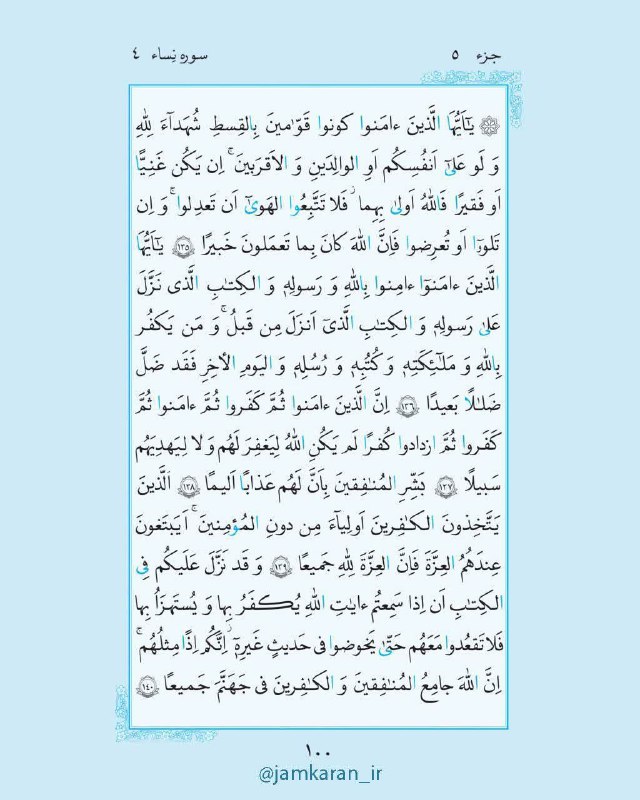 جزء ۵
سوره نِساء ۴
۞ يٰٓاَيُّهَا الَّذينَ ءامَنوا كونوا قَوّٰمينَ بِالقِسطِ شُهَدآءَ لِلّٰهِ
وَ لَو عَلىٰٓ اَنفُسِكُم اَوِ الوالِدَينِ وَ الاَقرَبينَ ۚ اِن يَكُن غَنِيًّا
اَو فَقيرًا فَاللهُ اَولىٰ بِهِما ۖ فَلا تَتَّبِعُوا الهَوىٰٓ اَن تَعدِلوا ۚ وَ اِن
تَلوۥٓا اَو تُعرِضوا فَاِنَّ اللهَ كانَ بِما تَعمَلونَ خَبيرًا ﴿۱۳۵﴾ يٰٓاَيُّهَا
الَّذينَ ءامَنوٓا ءامِنوا بِاللهِ وَ رَسولِهٖ وَ الكِتٰبِ الَّذى نَزَّلَ
عَلىٰ رَسولِهٖ وَ الكِتٰبِ الَّذىٓ اَنزَلَ مِن قَبلُ ۚ وَ مَن يَكفُر
بِاللهِ وَ مَلٰٓئِكَتِهٖ وَ كُتُبِهٖ وَ رُسُلِهٖ وَ اليَومِ الءاخِرِ فَقَد ضَلَّ
ضَلٰلًا بَعيدًا ﴿۱۳۶﴾ اِنَّ الَّذينَ ءامَنوا ثُمَّ كَفَروا ثُمَّ ءامَنوا ثُمَّ
كَفَروا ثُمَّ ازدادوا كُفرًا لَم يَكُنِ اللهُ لِيَغفِرَ لَهُم وَ لا لِيَهدِيَهُم
سَبيلًا ﴿۱۳۷﴾ بَشِّرِ المُنٰفِقينَ بِاَنَّ لَهُم عَذابًا اَليمًا ﴿۱۳۸﴾ اَلَّذينَ
يَتَّخِذونَ الكٰفِرينَ اَولِيآءَ مِن دونِ المُؤمِنينَ ۚ اَيَبتَغونَ
عِندَهُمُ العِزَّةَ فَاِنَّ العِزَّةَ لِلّٰهِ جَميعًا ﴿۱۳۹﴾ وَ قَد نَزَّلَ عَلَيكُم فِى
الكِتٰبِ اَن اِذا سَمِعتُم ءايٰتِ اللهِ يُكفَرُ بِها وَ يُستَهزَاُ بِها
فَلا تَقعُدوا مَعَهُم حَتّىٰ يَخوضوا فى حَديثٍ غَيرِهٖٓ ۚ اِنَّكُم اِذًا مِثلُهُم ۗ
اِنَّ اللهَ جامِعُ المُنٰفِقينَ وَ الكٰفِرينَ فى جَهَنَّمَ جَميعًا ﴿۱۴۰﴾
۱۰۰
@jamkaran_ir